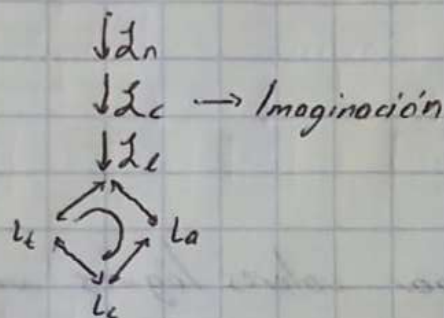 ↓ℒn
↓ℒc → Imaginación
↓ℒℓ
Lt La
Lc